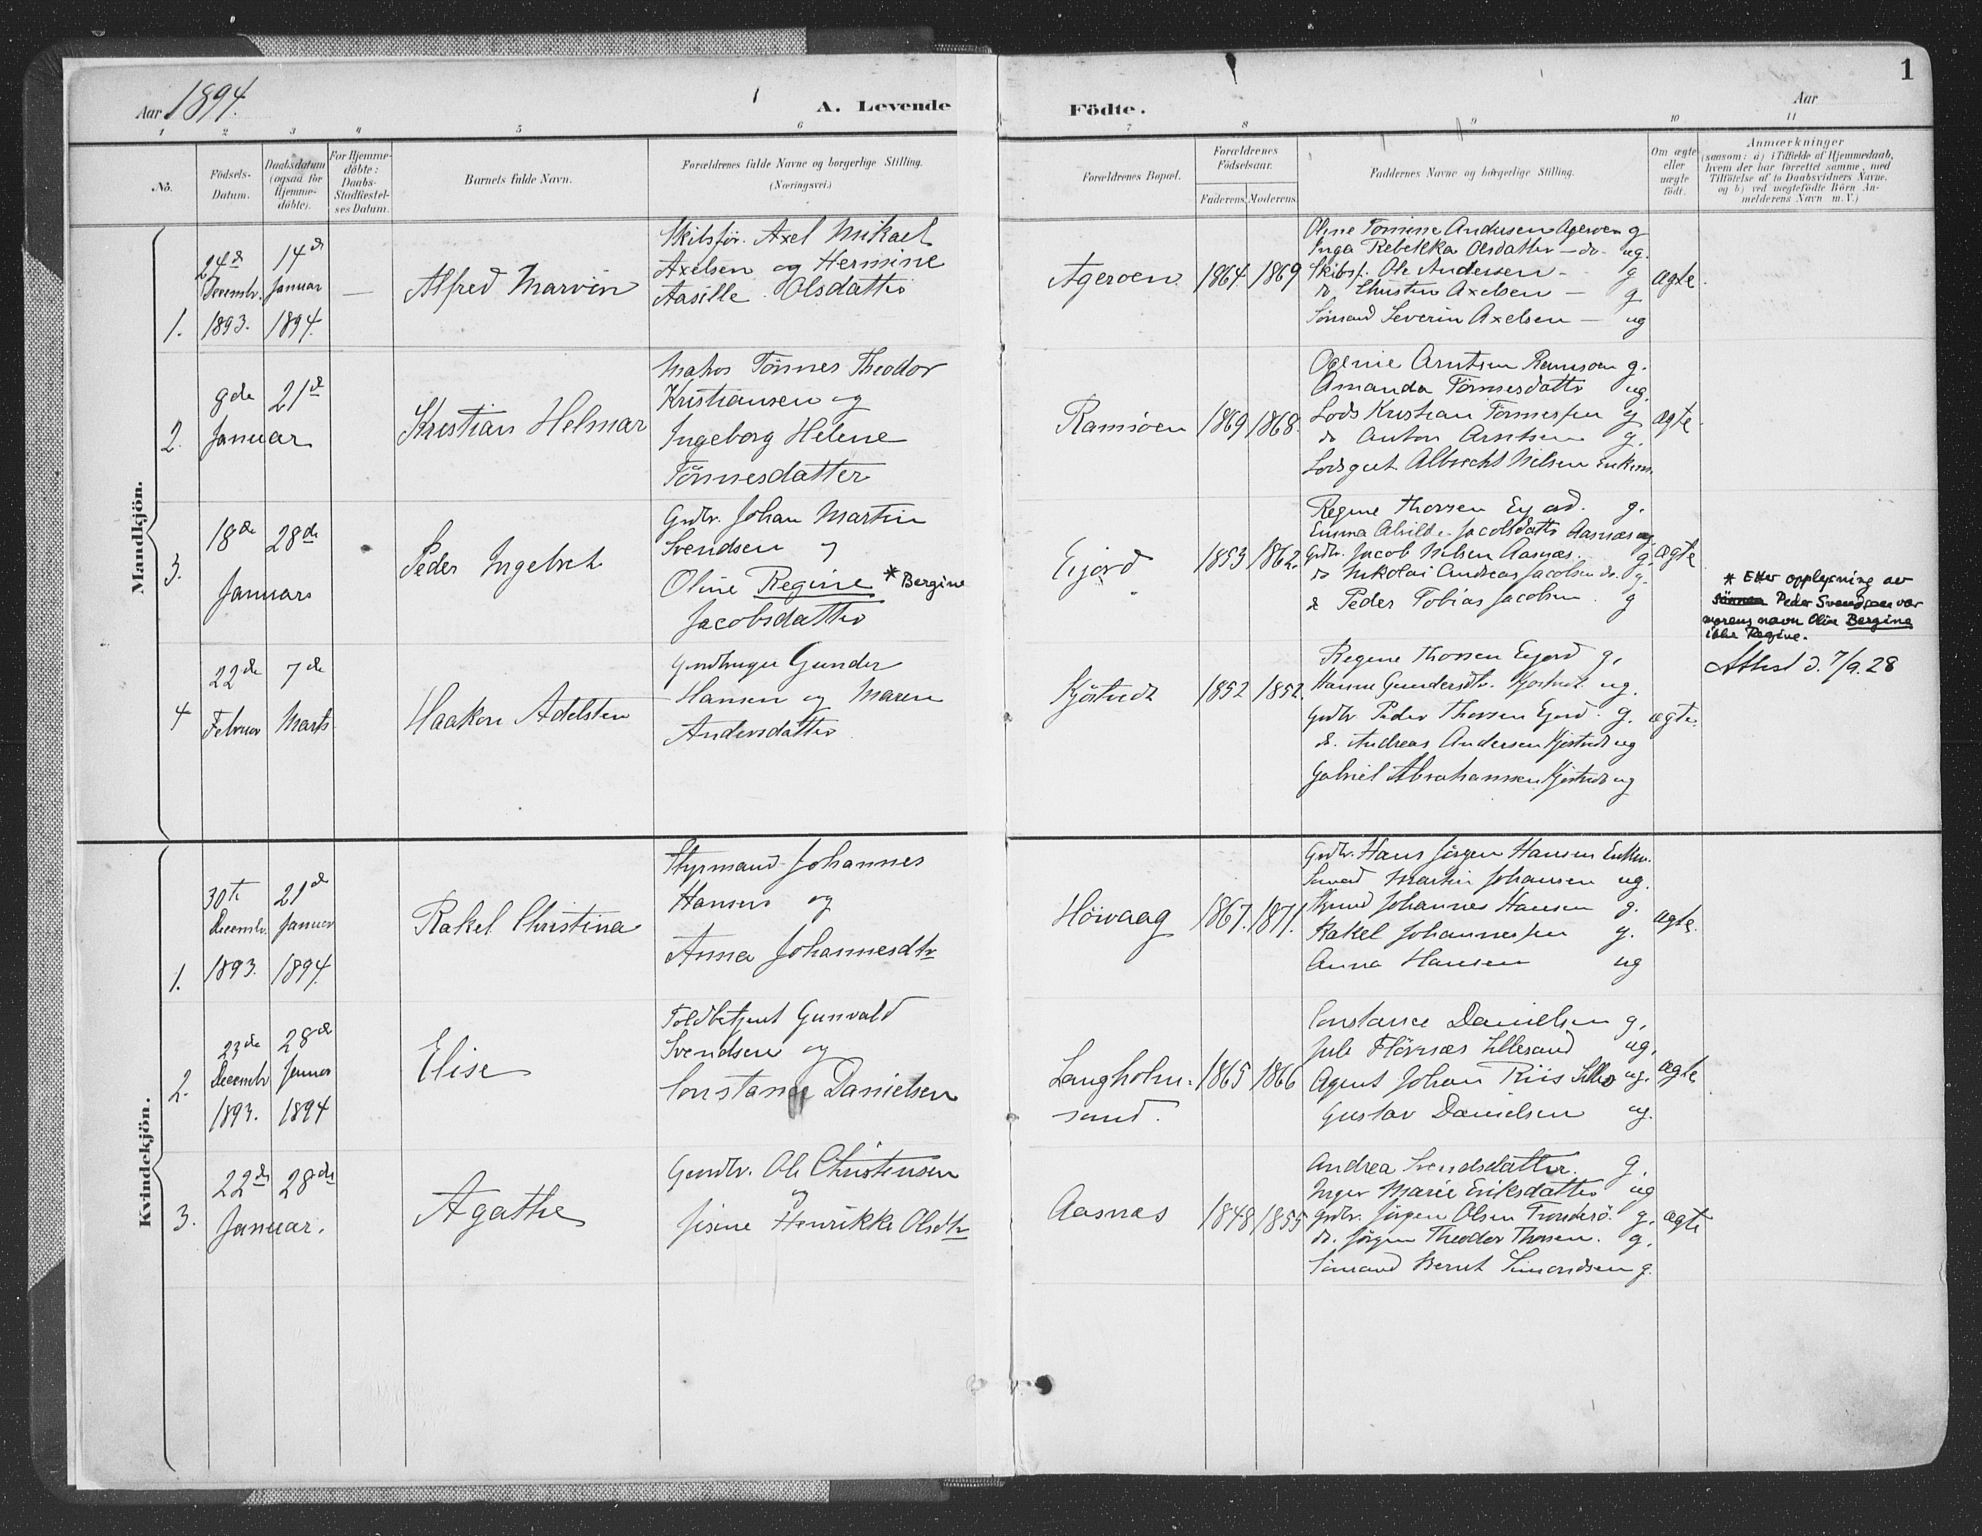 1
Aar 1894.
A. Levende
Födte.
Aar
1 2 3 4 5 6 7 8 9 10 11
No.
Födsels-
Datum.
Daabsdatum
(ogsaa for
Hjemme-
döbte).
For Hjemme-
döbte:
Daabs-
Stadfæstel-
ses Datum.
Barnets fulde Navn.
Forældrenes fulde Navne og borgerlige Stilling.
(Næringsvei.)
Forældrenes Bopæl.
Forældrenes
Födselsaar.
Faderens. Moderens.
Faddernes Navne og borgerlige Stilling.
Om ægte
eller
uægte
födt.
Anmærkninger
(saasom: a) i Tilfælde af Hjemmedaab,
hvem der har forrettet samme, med
Tilföielse af to Daabsvidners Navne,
og b) ved uægtefödte Börn An-
melderens Navn m. V.)
Mandkjön.
1.
24de
Decembr.
1893.
14de
Januar
1894.
—
Alfred Marvin
Skibsför. Axel Mikael
Axelsen og Hermine
Aasille Olsdatter
Ageröen
1864 1869
Oline Tomine Andersen Ageröen g
Inga Rebekka Olsdatter — do. ug.
Skibsf. Ole Andersen — g
do Christen Axelsen — g
Sömand Severin Axelsen — ug
ægte
2.
9de 21de
Januar
Kristian Helmar
Matros Tönnes Theodor
Kristiansen og
Ingeborg Helene
Tönnesdatter
Ramsöen
1869 1868.
Arntsen Ramsöen g.
Amanda Tönnesdatter ug.
Lods Kristian Tönnessen g
do Anton Arntsen g.
Lodsgut Albrecht Nilsen Enkem.
ægte
3.
18de 28de
Januar
Peder Ingebret
Grdbr. Johan Martin
Svendsen og
Oline Regine * Bergine
Jacobsdatter
Eijord
1853 1862.
Regine Thorsen Eijord. g.
Emma Alvilde Jacobsdatter Aasnæs ug
Grdbr. Jacob Nilsen Aasnæs. g.
do Nikolai Andreas Jacobsen do. g.
do Peder Tobias Jacobsen. g
ægte
* Efter opplysning av
sönnen Peder Svendsen var
morens navn Oline Bergine
ikke Regine.
Attest d. 7/9.28
4
22de
Februar
7de
Marts
Haakon Adelsten
Gaardbruger Gunder
Hansen og Maren
Andersdatter
Kjöstvedt
1852 1852.
Regine Thorsen Eijord g.
Hanne Gundersdtr. Kjöstvedt ug.
Grdbr Peder Thorsen Eijord. g.
do. Andreas Andersen Kjöstvedt ug
Gabriel Abrahamsen Kjöstvedt ug
ægte.
Kvindekjön.
1.
30te
Decembr.
1893.
21de
Januar
1894.
Rakel Christina
Styrmand Johannes
Hansen og
Anna Johannesdtr
Höivaag
1867. 1871.
Grdbr. Hans Jörgen Hansen Enkem.
Martin Johansen ug.
Johannes Hansen g.
Rakel Johannessen g.
Anna Hansen ug
ægte.
2.
23de
Decembr
1893.
28de
Januar
1894
Elise
Toldbetjent Gunvald
Svendsen og
Constance Danielsen
Langholm-
sund.
1865 1866
Constance Danielsen g.
Flörnæs Lillesand ug.
Agent Johan Riis Lilles ug.
Gustav Danielsen ug.
ægte
3.
22de 28de
Januar.
Agathe
Gaardbr. Ole Christensen
og
Jisine Henrikke Olsdtr
Aasnæs
1848 1855
Andrea Svendsdatter. g.
Inger Marie Eriksdatter ug
Grdbr. Jörgen Olsen Tronderö. g.
do. Jörgen Theodor Thorsen. g.
Sömand Bernt Simondsen g.
ægte